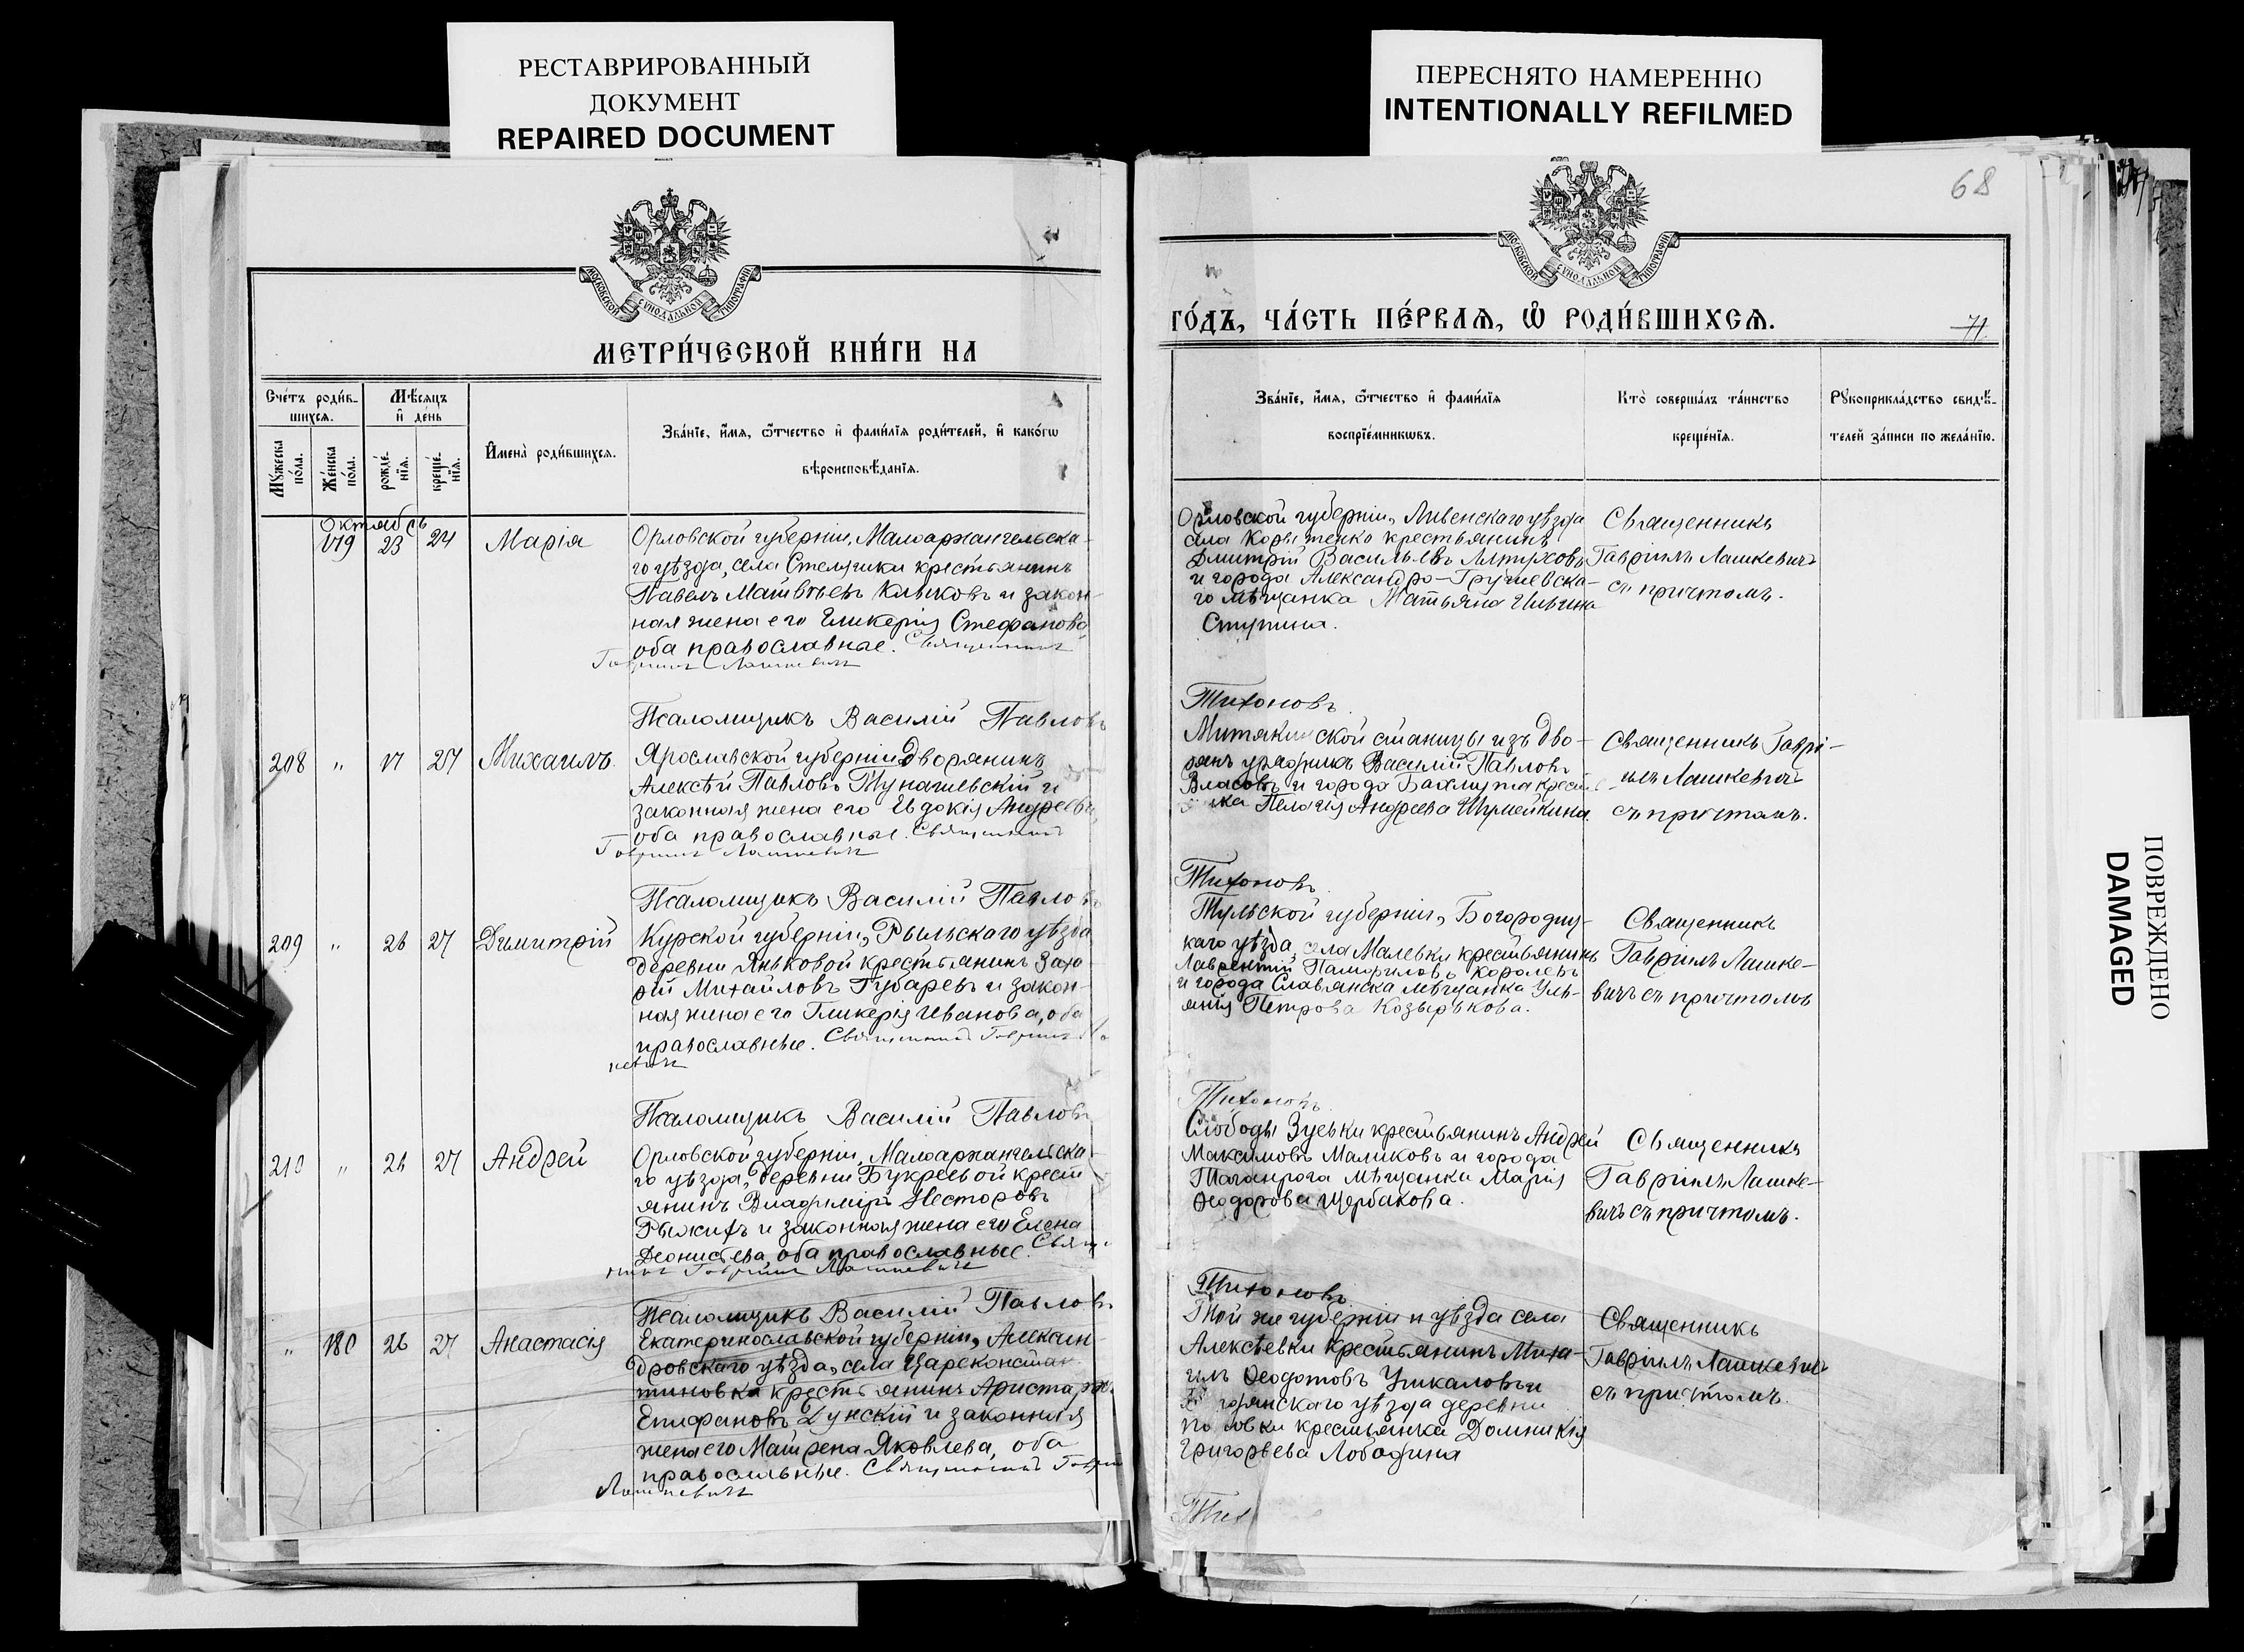 РЕСТАВРИРОВАННЫЙ
ДОКУМЕНТ
REPAIRED DOCUMENT
ПЕРЕСНЯТО НАМЕРЕННО
INTENTIONALLY REFILMED
68
МОСКОВСКОЙ СѴНОДАЛЬНОЙ ТИПОГРАФІИ
МЕТРИ́ЧЕСКОЙ КНИ́ГИ НА
Сче́тъ роди́в-
шихсѧ.
Мѣ́сѧцъ
и҆ де́нь
Мꙋ́жеска
по́ла.
Же́нска
по́ла.
рожде́-
нїѧ.
креще́-
нїѧ.
И҆мена̀ роди́вшихсѧ.
Зва́нїе, и҆́мѧ, ѻ҆́тчество и҆ фамилїѧ роди́телей, и҆ како́гѡ
вѣроисповѣ́данїѧ.
Октябрь
179 23 24 Марія
Орловской губерніи, Малоархангельска-
го уѣзда, села крестьянинъ
Павелъ Матвѣевъ и закон-
ная жена его Гликерія Стефанова,
оба православные. Священникъ
Гавріилъ Лашкевичъ
Псаломщикъ Василій Павловъ
208 " 17 27 Михаилъ
Ярославской губерніи дворянинъ
Алексѣй Павловъ и
законная жена его Евдокія Андреева,
оба православные. Священникъ
Гавріилъ Лашкевичъ
Псаломщикъ Василій Павловъ
209 " 26 27 Димитрій
Курской губерніи, Рыльскаго уѣзда
деревни Яньковой крестьянинъ Заха-
рій Михайловъ Губаревъ и закон-
ная жена его Гликерія Иванова, оба
православные. Священникъ Гавріилъ
Псаломщикъ Василій Павловъ
210 " 26 27 Андрей
Орловской губерніи, Малоархангельска-
го уѣзда, деревни Букреевой крестъ
янинъ Владиміръ Несторовъ
Рыжихъ и законная жена его Елена
Деонисьева, оба православные. Священ-
никъ Гавріилъ Лашкевичъ
Псаломщикъ Василій Павловъ
" 180 26 27 Анастасія
Екатеринославской губерніи, Алексан-
дровскаго уѣзда, села Цареконстан-
тиновка крестьянинъ
Епифановъ Дунскій и законная
жена его Матрена Яковлева, оба
православные. Священникъ Гавріилъ
Лашкевичъ
МОСКОВСКОЙ СѴНОДАЛЬНОЙ ТИПОГРАФІИ
ГО́ДЪ, ЧА́СТЬ ПЕ́РВАѦ, Ѡ҆ РОДИ́ВШИХСѦ.
71
Зва́нїе, и҆́мѧ, ѻ҆́тчество и҆ фами́лїѧ
воспрїе́мникѡвъ.
Кто̀ соверша́лъ та́инство
креще́нїѧ.
Рꙋкоприкла́дство свидѣ́-
телей за́писи по жела́нїю.
Орловской губерніи, Ливенскаго уѣзда
села крестьянинъ
Дмитрій Васильевъ Алтуховъ
и города Александро-Грушевска-
го мѣщанка Татьяна Ильина
Ступина.
Священникъ
Гавріилъ Лашкевичъ
съ причтомъ.
Тихоновъ.
Митякинской станицы изъ дво-
рянъ урядникъ Василій Павловъ
Власовъ и города Бахмута
Пелагія Андреева Шумейкина.
Священникъ Гаврі-
илъ Лашкевичъ
съ причтомъ.
Тихоновъ.
Тульской губерніи, Богородиц-
каго уѣзда, села Малевки крестьянинъ
Лаврентій Памфиловъ Королевъ
и города Славянска мѣщанка Уль-
янія Петрова Козырькова.
Священникъ
Гавріилъ Лашке-
вичъ съ причтомъ
Тихоновъ.
Слободы Зуевки крестьянинъ Андрей
Максимовъ Маликовъ и города
Таганрога мѣщанка Марія
Ѳеодорова Щербакова.
Священникъ
Гавріилъ Лашке-
вичъ съ причтомъ.
Тихоновъ
Той же губерніи и уѣзда села
Алексѣевки крестьянинъ Миха-
илъ Ѳеодотовъ Чикаловъ и
уѣзда деревни
крестьянка Домникія
Григорьева Лободина
Священникъ
Гавріилъ Лашкевичъ
съ причтомъ.
Тих
ПОВРЕЖДЕНО
DAMAGED